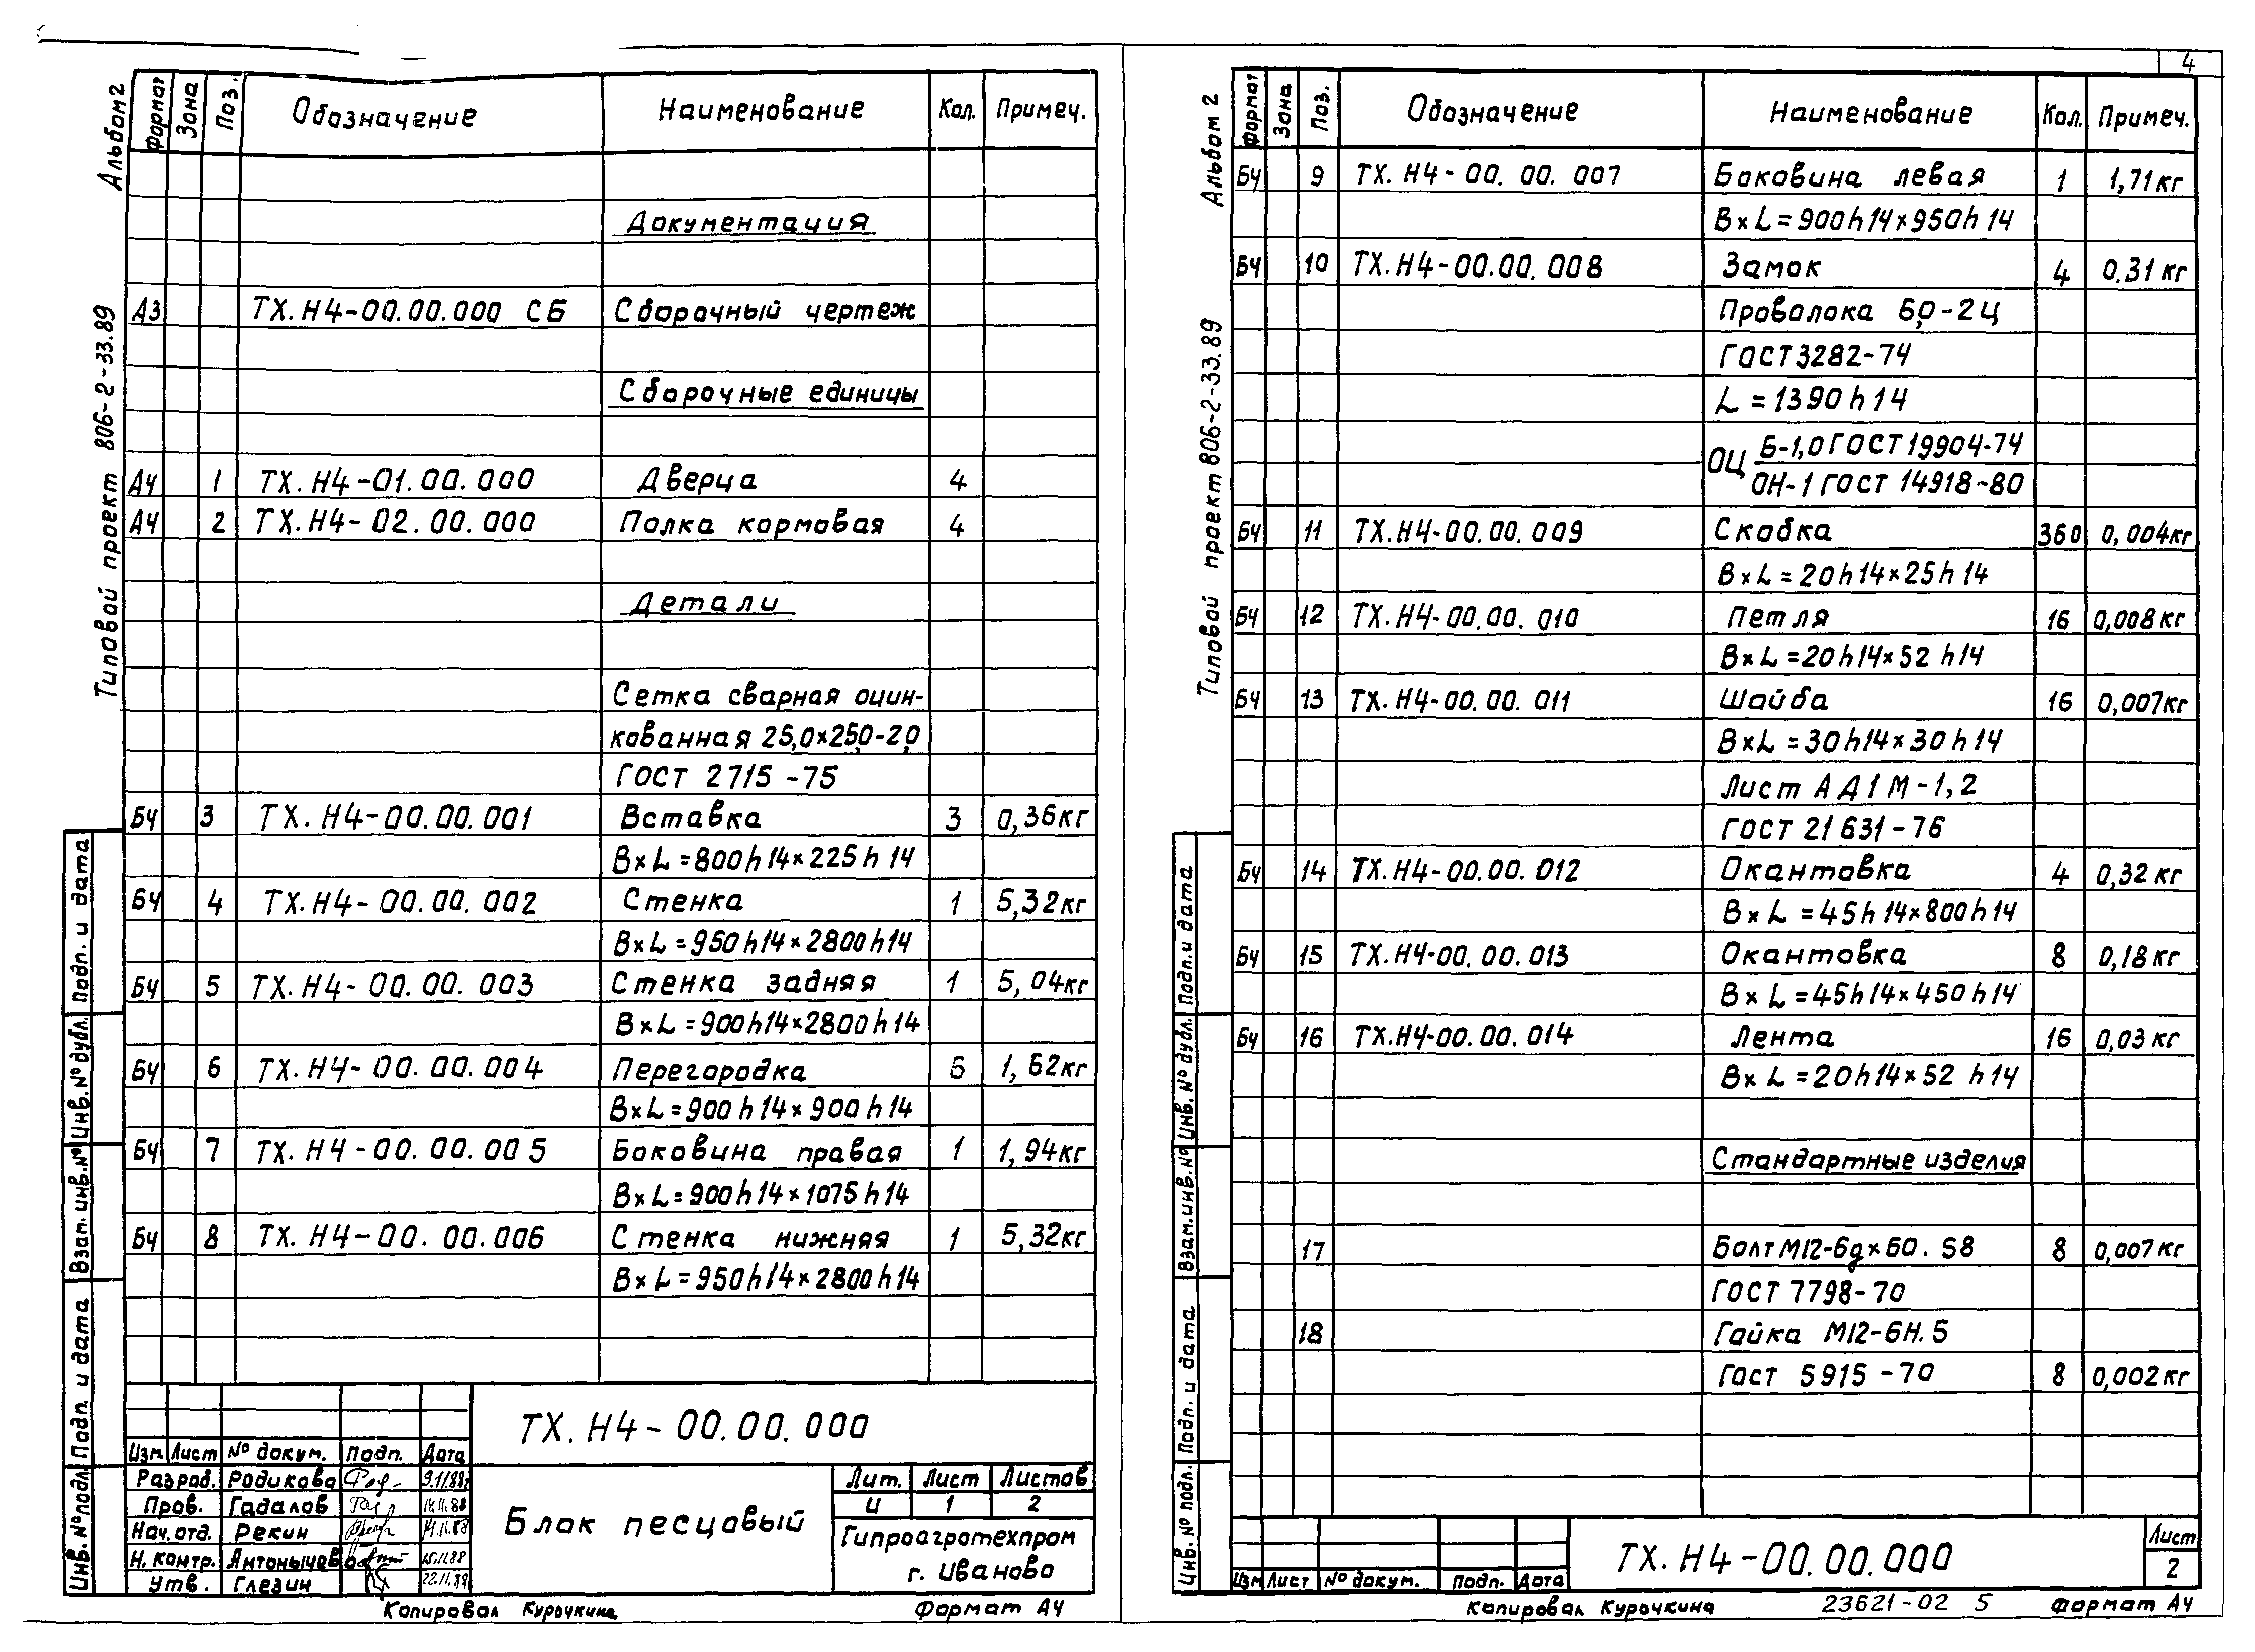 4
Альбом 2
Типовой проект 806-2-33.89
Формат Зона Поз. Обозначение Наименование Кол. Примеч.
Документация
А3 ТХ.Н4-00.00.000 СБ Сборочный чертеж
Сборочные единицы
А4 1 ТХ.Н4-01.00.000 Дверца 4
А4 2 ТХ.Н4-02.00.000 Полка кормовая 4
Детали
Сетка сварная оцин-
кованная 25,0×25,0-2,0
ГОСТ 2715-75
БЧ 3 ТХ.Н4-00.00.001 Вставка 3 0,36кг
B×L=800h14×225h14
БЧ 4 ТХ.Н4-00.00.002 Стенка 1 5,32кг
B×L=950h14×2800h14
БЧ 5 ТХ.Н4-00.00.003 Стенка задняя 1 5,04кг
B×L=900h14×2800h14
БЧ 6 ТХ.Н4-00.00.004 Перегородка 1,62кг
B×L=900h14×900h14
БЧ 7 ТХ.Н4-00.00.005 Боковина правая 1 1,94кг
B×L=900h14×1075h14
БЧ 8 ТХ.Н4-00.00.006 Стенка нижняя 1 5,32кг
B×L=950h14×2800h14
Инв. № подл. Подп. и дата Взам. инв. № Инв. № дубл. Подп. и дата
ТХ.Н4-00.00.000
Изм Лист № докум. Подп. Дата
Разраб. Родикова 9.11.88
Пров. Гадалов 14.11.88
Нач. отд. Рекин 14.11.88
Н. контр. Антонычева 15.11.88
Утв. Глезин 22.11.88
Блок песцовый
Лит. Лист Листов
И 1 2
Гипроагротехпром
г. Иваново
Копировал Курочкина Формат А4
Альбом 2
Типовой проект 806-2-33.89
Формат Зона Поз. Обозначение Наименование Кол. Примеч.
БЧ 9 ТХ.Н4-00.00.007 Боковина левая 1 1,71кг
B×L=900h14×950h14
БЧ 10 ТХ.Н4-00.00.008 Замок 4 0.31кг
Проволока 6,0-2Ц
ГОСТ3282-74
L=1390h14
ОЦ Б-1,0 ГОСТ 19904-74
ОН-1 ГОСТ 14918-80
БЧ 11 ТХ.Н4-00.00.009 Скобка 360 0,004кг
B×L=20h14×25h14
БЧ 12 ТХ.Н4-00.00.010 Петля 16 0,008кг
B×L=20h14×52h14
БЧ 13 ТХ.Н4-00.00.011 Шайба 16 0,007кг
B×L=30h14×30h14
Лист АД1М-1,2
ГОСТ 21631-76
БЧ 14 ТХ.Н4-00.00.012 Окантовка 4 0,32кг
B×L=45h14×800h14
БЧ 15 ТХ.Н4-00.00.013 Окантовка 8 0,18кг
B×L=45h14×450h14
БЧ 16 ТХ.Н4-00.00.014 Лента 16 0,03кг
B×L=20h14×52h14
Стандартные изделия
17 Болт М12-6g×60.58 8 0,007кг
ГОСТ 7798-70
18 Гайка М12-6Н.5
Гост 5915-70 8 0,002кг
Инв. № подл. Подп. и дата Взам. инв. № Инв. № дубл. Подп. и дата
Изм Лист № докум. Подп. Дата
ТХ.Н4-00.00.000
Лист
2
Копировал Курочкина 23621-02 5 Формат А4